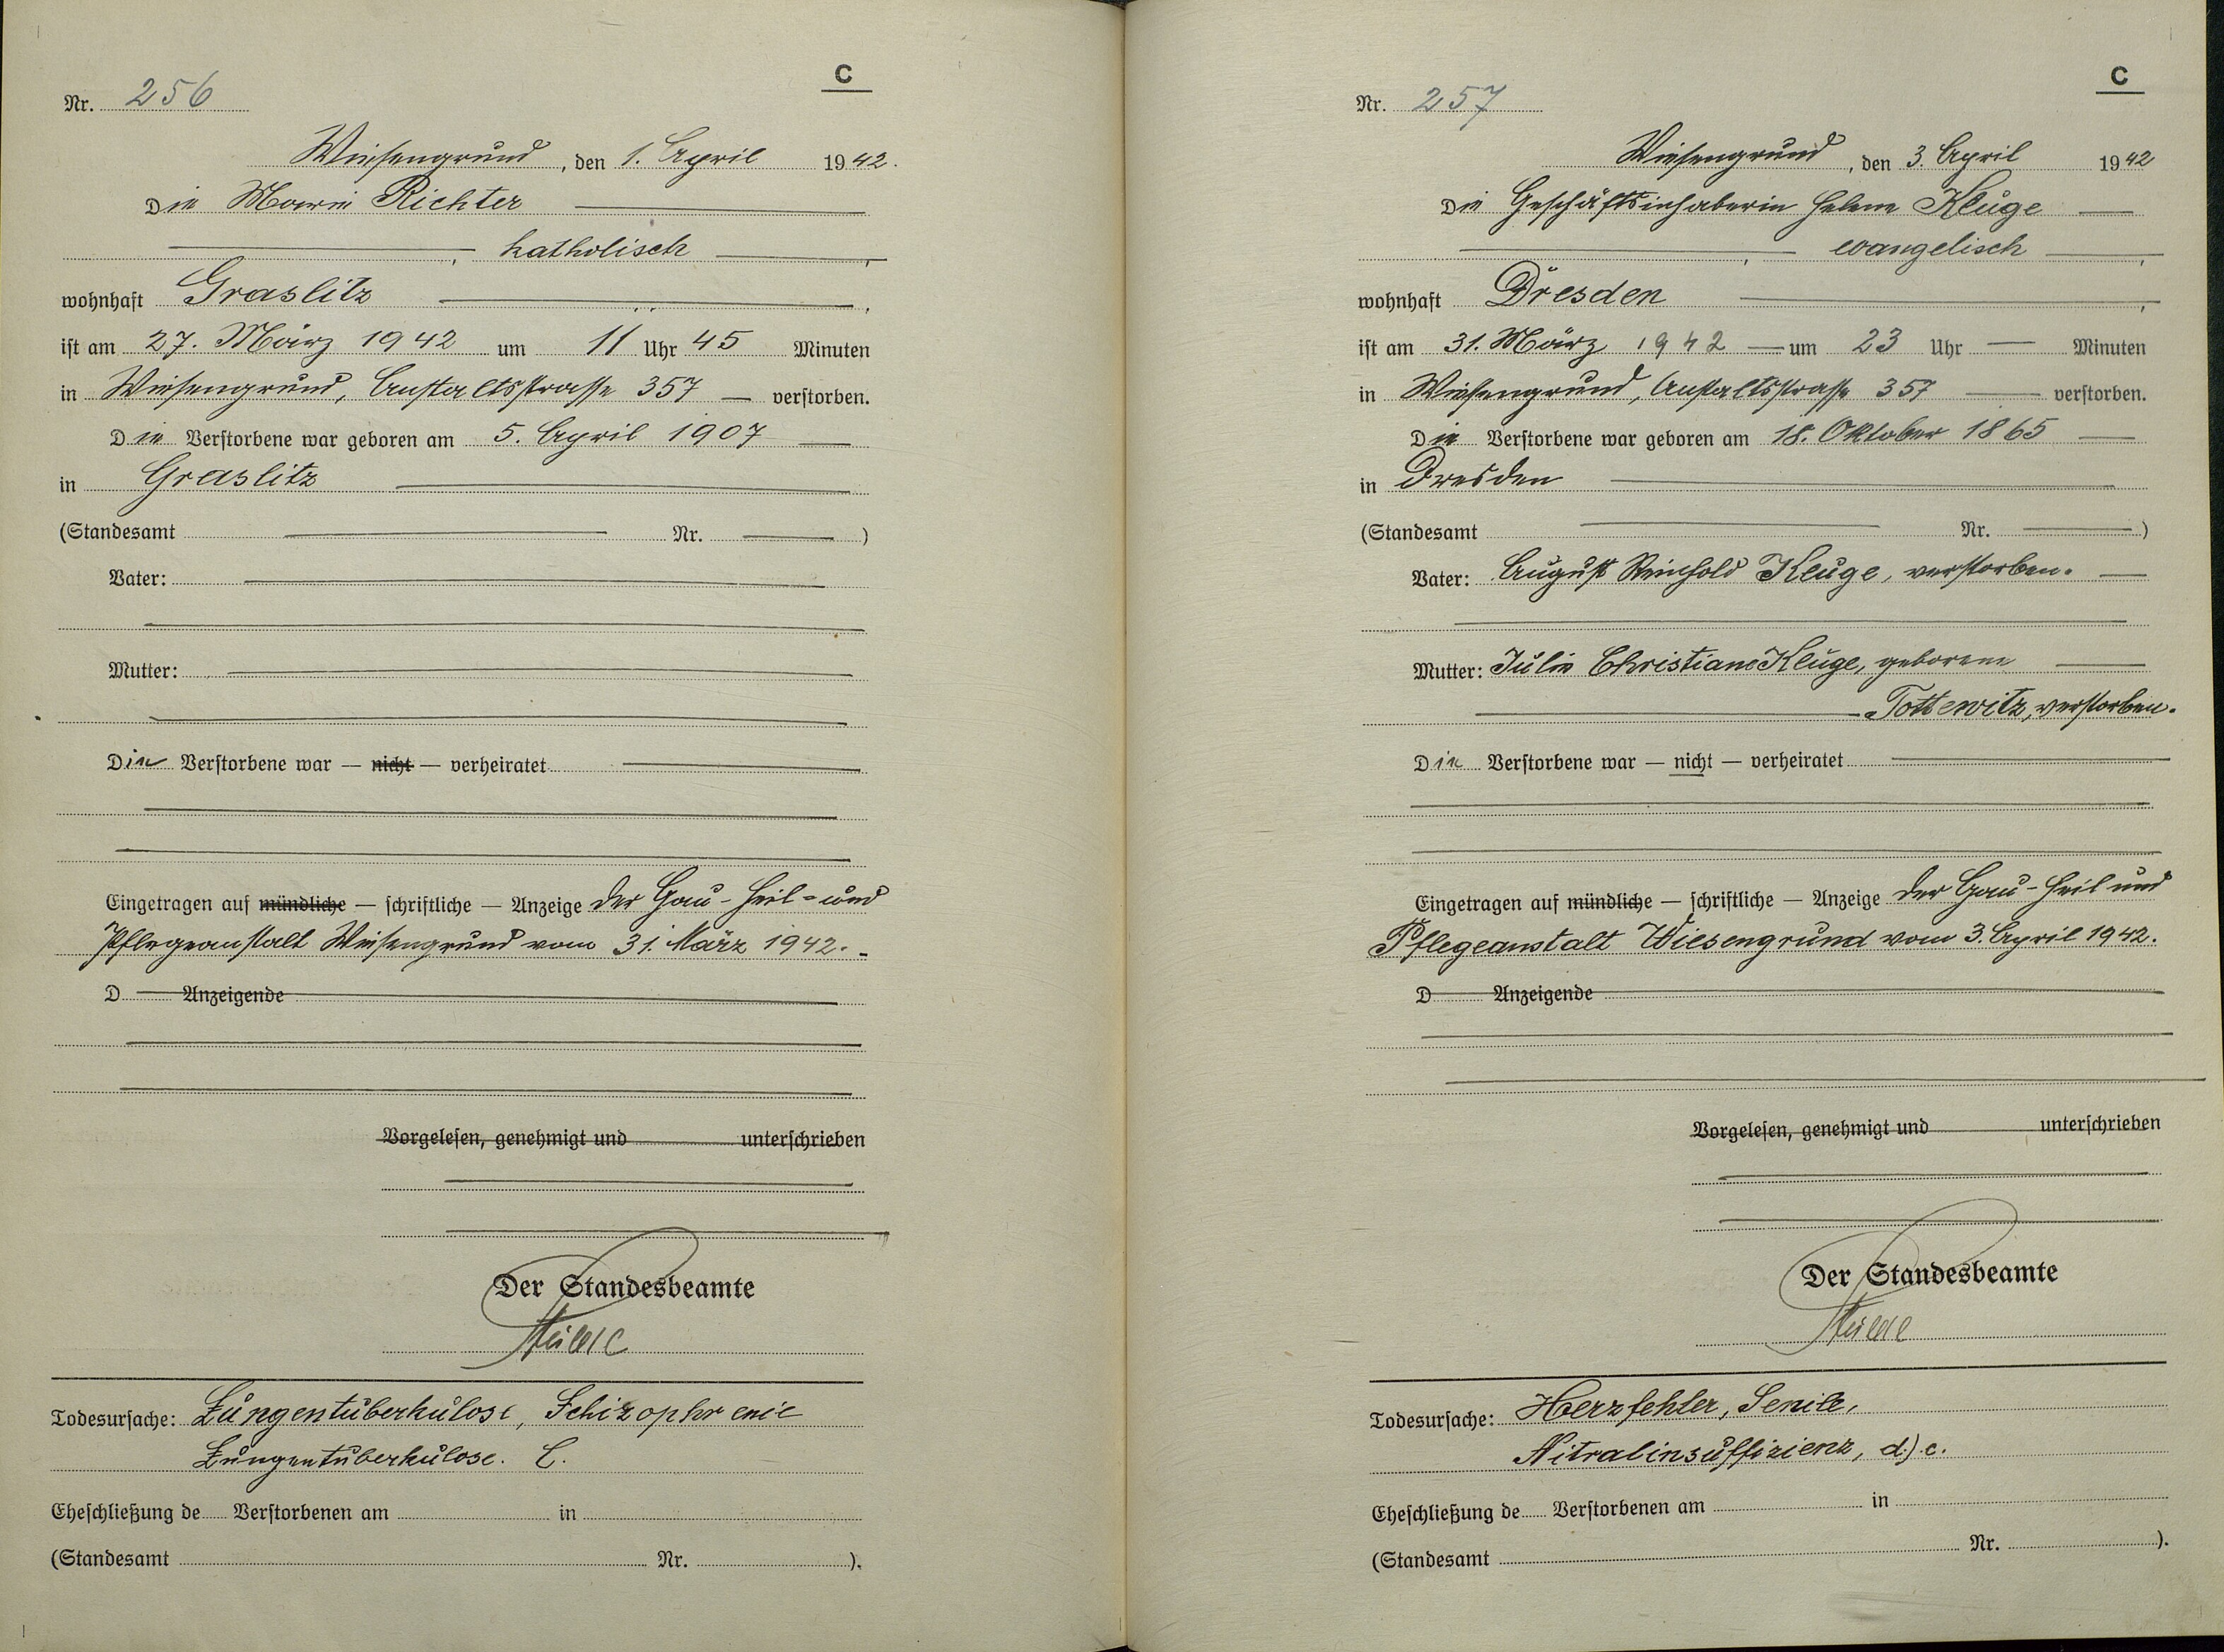 C
Nr. 256
Wiesengrund, den 1. April 1942.
Die Marie Richter
katholisch,
wohnhaft Graslitz,
ist am 27. März 1942 um 11 Uhr 45 Minuten
in Wiesengrund, Anstaltsstrasse 357 — verstorben.
Die Verstorbene war geboren am 5. April 1907
in Graslitz
(Standesamt Nr. )
Vater:
Mutter:
Die Verstorbene war — nicht — verheiratet
Eingetragen auf mündliche — schriftliche — Anzeige der Gau-Heil- und
Pflegeanstalt Wiesengrund vom 31. März 1942.
D Anzeigende
Vorgelesen, genehmigt und unterschrieben
Der Standesbeamte
Todesursache: Lungentuberkulose, Schizophrenie
Lungentuberkulose. C.
Eheschließung de Verstorbenen am in
(Standesamt Nr. ).
C
Nr. 257
Wiesengrund, den 3. April 1942
Die Geschäftsinhaberin Helene Kluge
evangelisch,
wohnhaft Dresden,
ist am 31. März 1942 — um 23 Uhr — Minuten
in Wiesengrund, Anstaltsstrasse 357 — verstorben.
Die Verstorbene war geboren am 18. Oktober 1865
in Dresden
(Standesamt Nr. )
Vater: August Reinhold Kluge, verstorben.
Mutter: Julie Christiane Kluge, geborene
Tottewitz, verstorben.
Die Verstorbene war — nicht — verheiratet
Eingetragen auf mündliche — schriftliche — Anzeige der Gau-Heil und
Pflegeanstalt Wiesengrund vom 3. April 1942.
D Anzeigende
Vorgelesen, genehmigt und unterschrieben
Der Standesbeamte
Todesursache: Herzfehler, Senile,
Nitralinsuffizienz, d.).c.
Eheschließung de Verstorbenen am in
(Standesamt Nr. ).